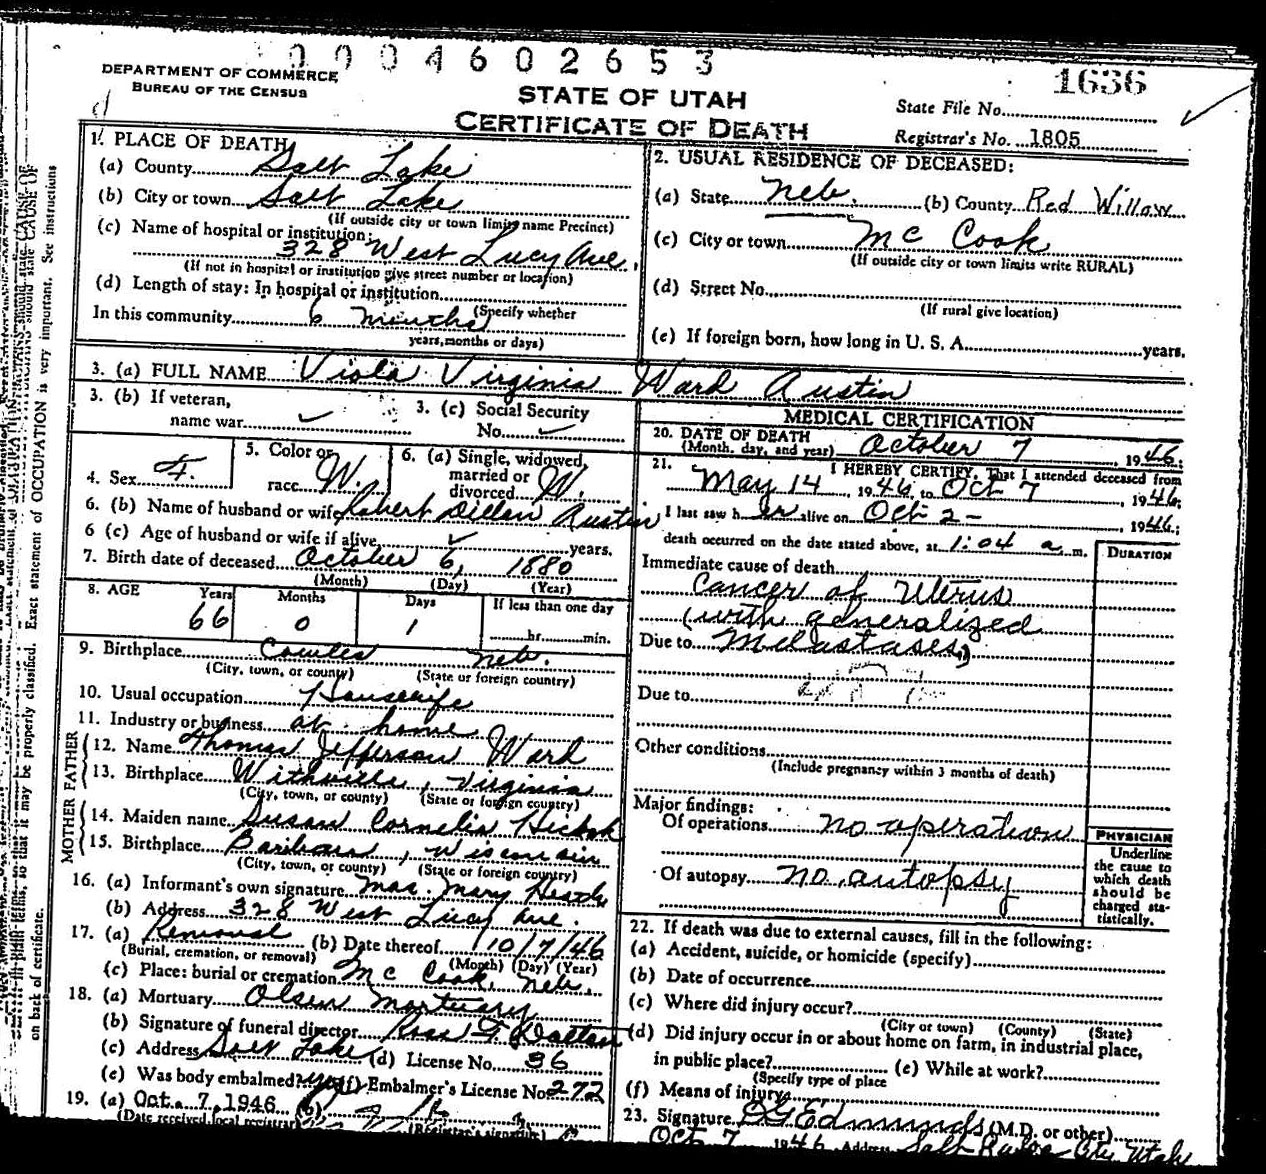 0004602653
1636
DEPARTMENT OF COMMERCE
BUREAU OF THE CENSUS
STATE OF UTAH
CERTIFICATE OF DEATH
State File No.
Registrar's No. 1805
1. PLACE OF DEATH
(a) County Salt Lake
(b) City or town Salt Lake
(If outside city or town limits name Precinct)
(c) Name of hospital or institution:
328 West Lucy Ave.
(If not in hospital or institution give street number or location)
(d) Length of stay: In hospital or institution
(Specify whether
In this community 6 months
years, months or days)
2. USUAL RESIDENCE OF DECEASED:
(a) State Neb. (b) County Red Willow
(c) City or town Mc Cook
(If outside city or town limits write RURAL)
(d) Street No.
(If rural give location)
(e) If foreign born, how long in U. S. A. years.
3. (a) FULL NAME Viola Virginia Ward Austin
3. (b) If veteran,
name war
3. (c) Social Security
No.
4. Sex F.
5. Color or
race W.
6. (a) Single, widowed,
married or
divorced W.
6. (b) Name of husband or wife Robert Dillon Austin
6 (c) Age of husband or wife if alive years.
7. Birth date of deceased October 6, 1880
(Month) (Day) (Year)
8. AGE Years Months Days If less than one day
66 0 1 hr. min.
9. Birthplace Cowles Neb.
(City, town, or county) (State or foreign country)
10. Usual occupation Housewife
11. Industry or business at home
FATHER
12. Name Thomas Jefferson Ward
13. Birthplace Withville, Virginia
(City, town, or county) (State or foreign country)
MOTHER
14. Maiden name Susan Cornelia Hickok
15. Birthplace , Wisconsin
(City, town, or county) (State or foreign country)
16. (a) Informant's own signature Mrs. Mary Heath
(b) Address 328 West Lucy Ave.
17. (a) Removal (b) Date thereof 10/7/46
(Burial, cremation, or removal) (Month) (Day) (Year)
(c) Place: burial or cremation Mc Cook, Neb.
18. (a) Mortuary Olsen Mortuary
(b) Signature of funeral director Ross G. Dalton
(c) Address Salt Lake (d) License No. 36
(e) Was body embalmed? yes (f) Embalmer's License No. 272
19. (a) Oct. 7, 1946 (b)
(Date received local registrar) (Registrar's signature)
MEDICAL CERTIFICATION
20. DATE OF DEATH
(Month, day, and year) October 7, 1946;
21. I HEREBY CERTIFY, That I attended deceased from
May 14, 1946, to Oct 7, 1946;
I last saw her alive on Oct 2 - 1946;
death occurred on the date stated above, at 1:04 a. m.
DURATION
Immediate cause of death
Cancer of Uterus
(with generalized
Due to Metastases)
Due to
Other conditions
(Include pregnancy within 3 months of death)
Major findings:
Of operations no operation
Of autopsy no autopsy
PHYSICIAN
Underline
the cause to
which death
should be
charged sta-
tistically.
22. If death was due to external causes, fill in the following:
(a) Accident, suicide, or homicide (specify)
(b) Date of occurrence
(c) Where did injury occur?
(City or town) (County) (State)
(d) Did injury occur in or about home on farm, in industrial place,
in public place? (e) While at work?
(Specify type of place
(f) Means of injury
23. Signature Edmunds (M.D. or other)
Oct 7 1946 Address Salt Lake City Utah
OF OCCUPATION is very important. See instructions
it may be properly classified. Exact statement of
on back of certificate.